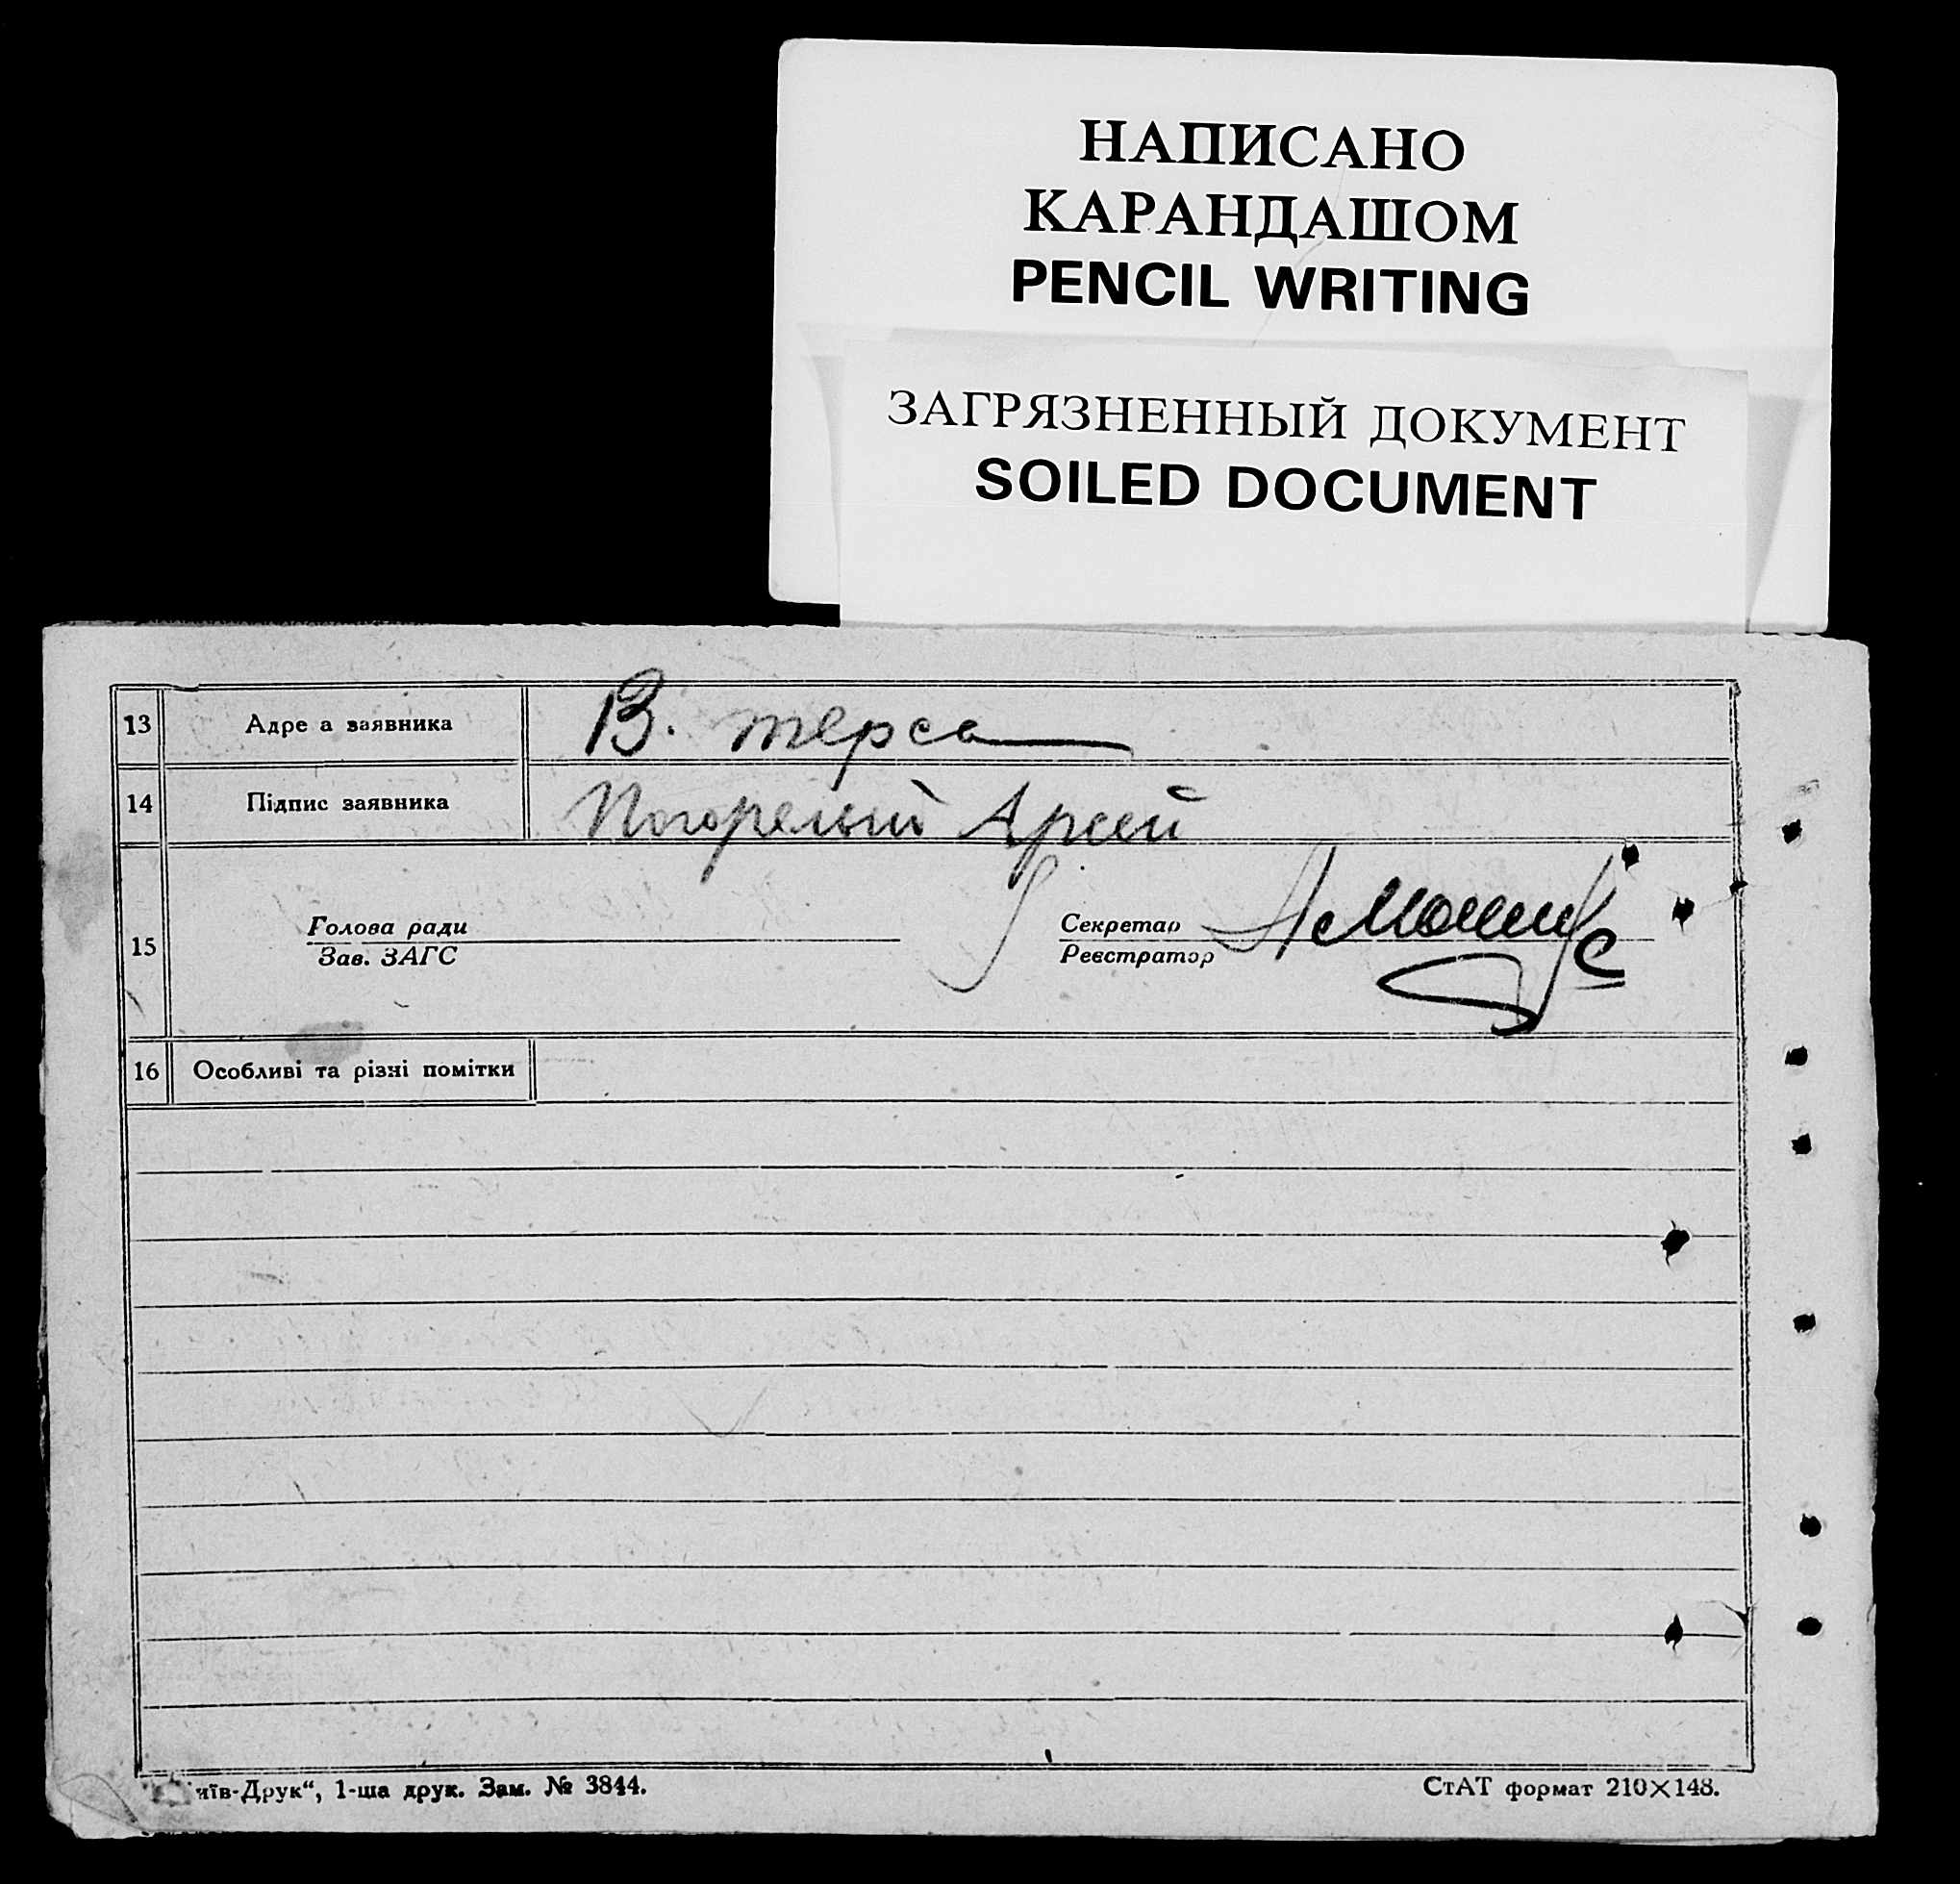 НАПИСАНО
КАРАНДАШОМ
PENCIL WRITING
ЗАГРЯЗНЕННЫЙ ДОКУМЕНТ
SOILED DOCUMENT
13 Адре а заявника В. терса
14 Підпис заявника Погорелый Арсей
15 Голова ради Секретар
Зав. ЗАГС Реєстратор
16 Особливі та різні помітки
иїв-Друк“, 1-ша друк. Зам. № 3844. СтАТ формат 210×148.